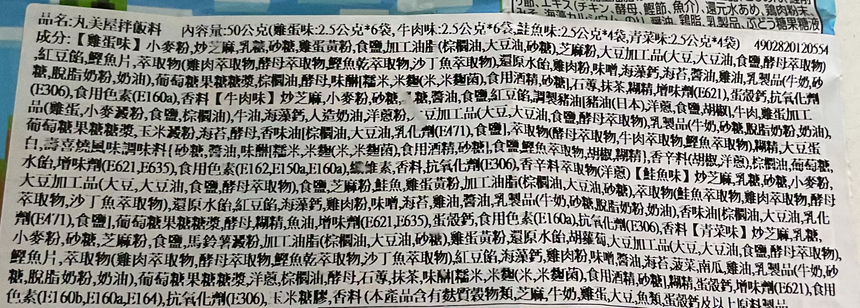 節、エキス(チキン、酵母、鰹節、魚介)、還元水あめ、鶏肉粉末、
海藻カルシウム、のり、醤油、鶏脂、乳製品、ぶどう糖果糖液
品名:丸美屋拌飯料 內容量:50公克(雞蛋味:2.5公克*6袋,牛肉味:2.5公克*6袋,鮭魚味:2.5公克*4袋,青菜味:2.5公克*4袋)
4902820120554
成分:【雞蛋味】小麥粉,炒芝麻,乳糖,砂糖,雞蛋黃粉,食鹽,加工油脂(棕櫚油,大豆油,砂糖),芝麻粉,大豆加工品(大豆,大豆油,食鹽,酵母萃取物)
,紅豆餡,鰹魚片,萃取物(雞肉萃取物,酵母萃取物,鰹魚乾萃取物,沙丁魚萃取物),還原水飴,雞肉粉,味噌,海藻鈣,海苔,醬油,雞油,乳製品(牛奶,砂
糖,脫脂奶粉,奶油),葡萄糖果糖糖漿,棕櫚油,酵母,味醂[糯米,米麴(米,米麴菌),食用酒精,砂糖],石蓴,抹茶,糊精,增味劑(E621),蛋殼鈣,抗氧化劑
(E306),食用色素(E160a),香料【牛肉味】炒芝麻,小麥粉,砂糖,糖,醬油,食鹽,紅豆餡,調製豬油[豬油(日本),洋蔥,食鹽,胡椒],牛肉,雞蛋加工
品(雞蛋,小麥澱粉,食鹽,棕櫚油),牛油,海藻鈣,人造奶油,洋蔥粉,豆加工品(大豆,大豆油,食鹽,酵母萃取物),乳製品(牛奶,砂糖,脫脂奶粉,奶油),
葡萄糖果糖糖漿,玉米澱粉,海苔,酵母,香味油[棕櫚油,大豆油,乳化劑(E471),食鹽],萃取物(酵母萃取物,牛肉萃取物,鰹魚萃取物),糊精,大豆蛋
白,壽喜燒風味調味料{砂糖,醬油,味醂[糯米,米麴(米,米麴菌),食用酒精,砂糖],食鹽,鰹魚萃取物,胡椒,糊精},香辛料(胡椒,洋蔥),棕櫚油,葡萄糖,
水飴,增味劑(E621,E635),食用色素(E162,E150a,E160a),纖維素,香料,抗氧化劑(E306),香辛料萃取物(洋蔥)【鮭魚味】炒芝麻,乳糖,砂糖,小麥粉,
大豆加工品(大豆,大豆油,食鹽,酵母萃取物),食鹽,芝麻粉,鮭魚,雞蛋黃粉,加工油脂(棕櫚油,大豆油,砂糖),萃取物(鮭魚萃取物,雞肉萃取物,酵母
萃取物,沙丁魚萃取物),還原水飴,紅豆餡,海藻鈣,雞肉粉,味噌,海苔,雞油,醬油,乳製品(牛奶,砂糖,脫脂奶粉,奶油),香味油[棕櫚油,大豆油,乳化
劑(E471),食鹽],葡萄糖果糖糖漿,酵母,糊精,魚油,增味劑(E621,E635),蛋殼鈣,食用色素(E160a),抗氧化劑(E306),香料【青菜味】炒芝麻,乳糖,
小麥粉,砂糖,芝麻粉,食鹽,馬鈴薯澱粉,加工油脂(棕櫚油,大豆油,砂糖),雞蛋黃粉,還原水飴,胡蘿蔔,大豆加工品(大豆,大豆油,食鹽,酵母萃取物),
鰹魚片,萃取物(雞肉萃取物,酵母萃取物,鰹魚乾萃取物,沙丁魚萃取物),紅豆餡,海藻鈣,雞肉粉,味噌,醬油,海苔,菠菜,南瓜,雞油,乳製品(牛奶,砂
糖,脫脂奶粉,奶油),葡萄糖果糖糖漿,洋蔥,棕櫚油,酵母,石蓴,抹茶,味醂[糯米,米麴(米,米麴菌),食用酒精,砂糖],糊精,蛋殼鈣,增味劑(E621),食用
色素(E160b,E160a,E164),抗氧化劑(E306),玉米糖膠,香料(本產品含有麩質穀物類,芝麻,牛奶,雞蛋,大豆,魚類,蛋殼鈣及以上原料製品